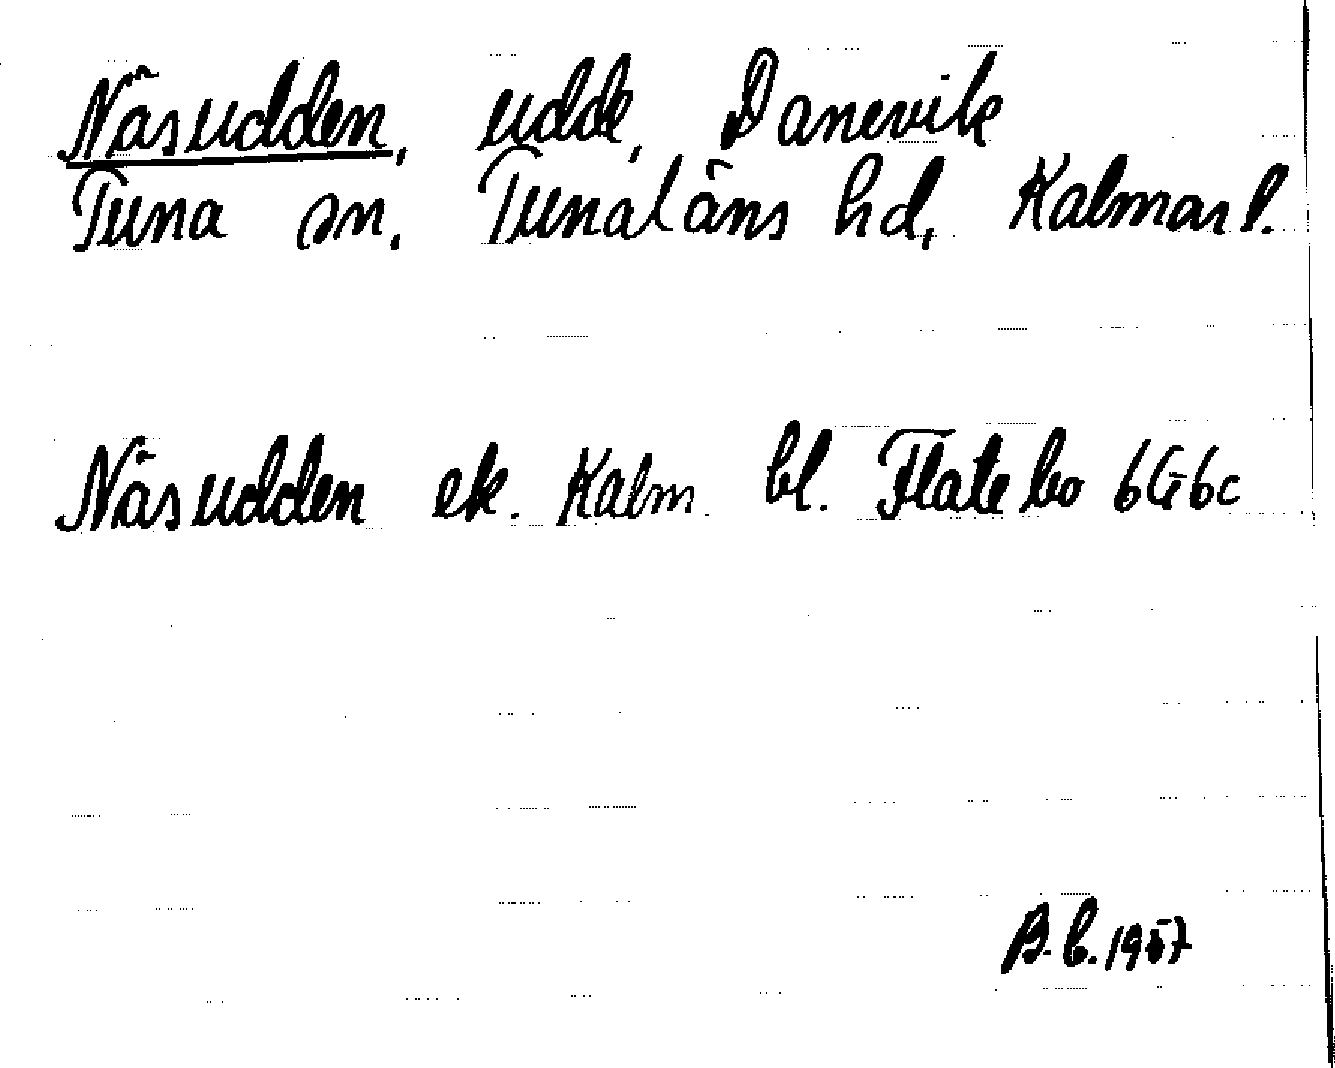 Näsudden, udde, Danevik
Tuna sn. Tunaläns hd, Kalmar l.
Näsudden ek. Kalm. bl. Flatebo 6G6c
B.L. 1957